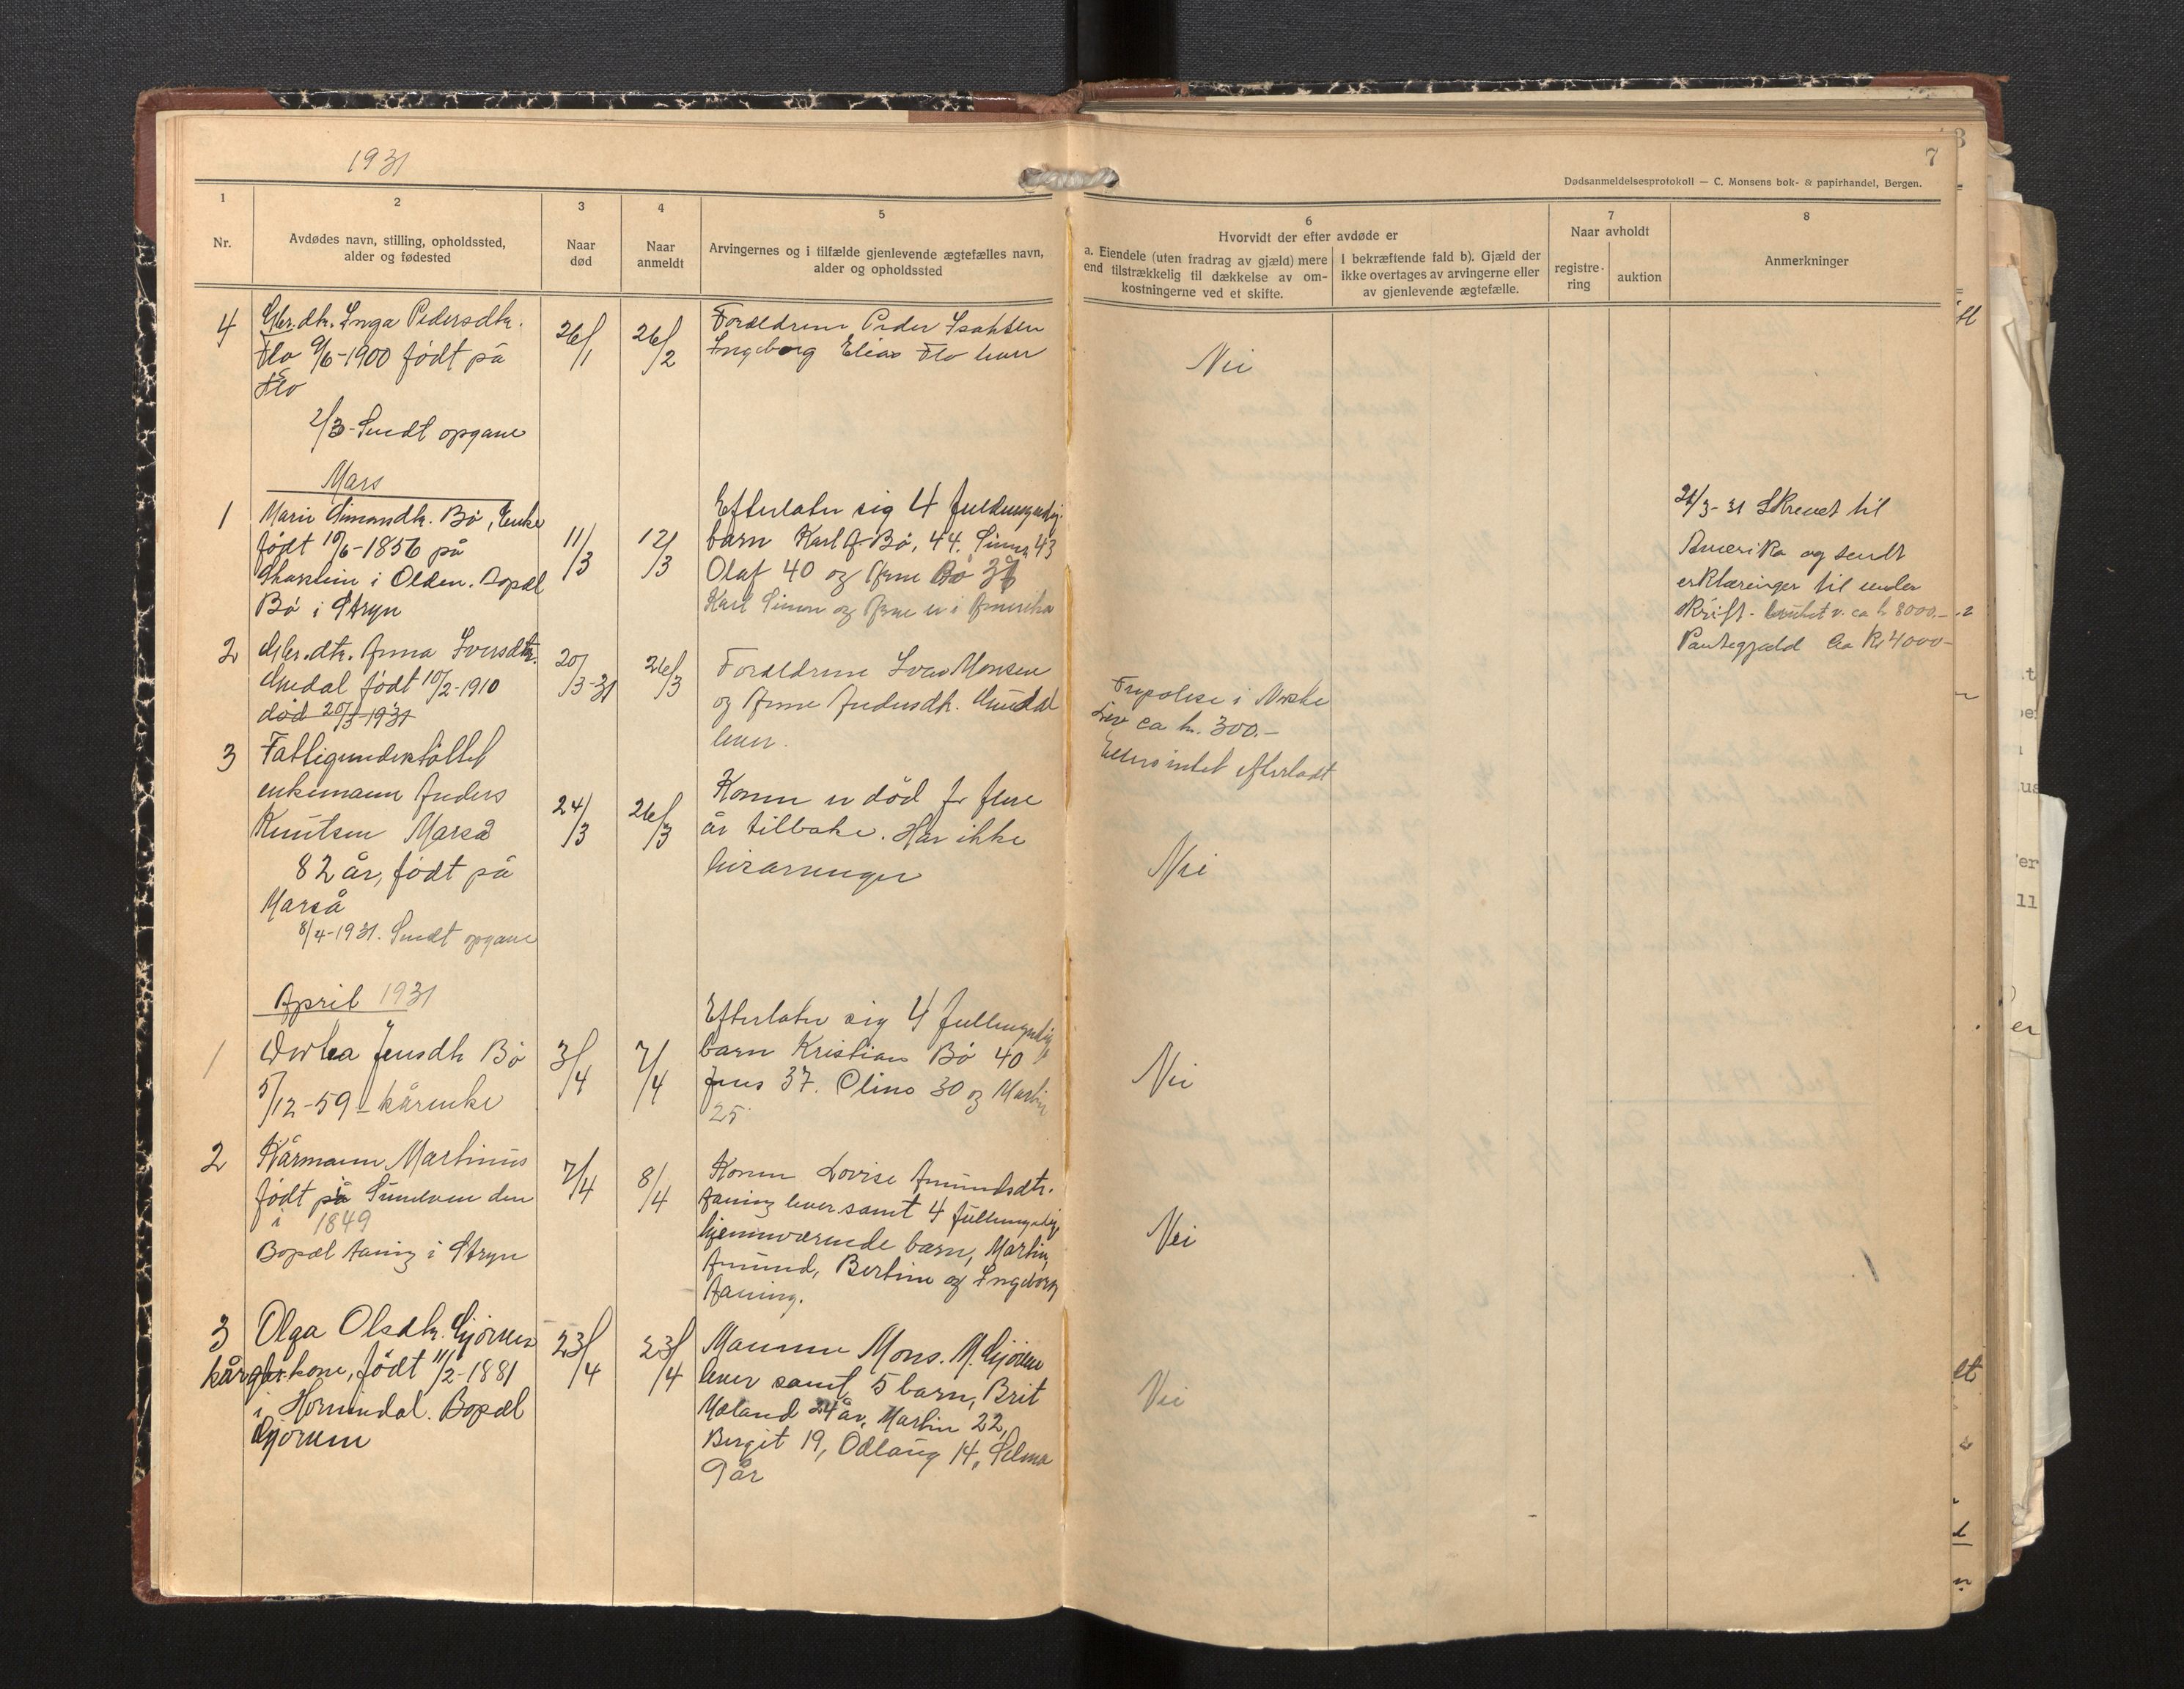 1931
7
Dødsanmeldelsesprotokoll — C. Monsens bok- & papirhandel, Bergen.
1
Nr.
2
Avdødes navn, stilling, opholdssted,
alder og fødested
3
Naar
død
4
Naar
anmeldt
5
Arvingernes og i tilfælde gjenlevende ægtefælles navn,
alder og opholdssted
6
Hvorvidt der efter avdøde er
a. Eiendele (uten fradrag av gjæld) mere
end tilstrækkelig til dækkelse av om-
kostningerne ved et skifte.
I bekræftende fald b). Gjæld der
ikke overtages av arvingerne eller
av gjenlevende ægtefælle.
7
Naar avholdt
registre-
ring
auktion
8
Anmerkninger
4
Gbr.dtr. Inga Pedersdtr.
Flo 9/6-1900 født på
Flo
2/3-Sendt opgave
26/1
26/2
Foreldrene Peder Isaksen
Ingeborg Elias Flo lever
Nei
Mars
1
Marie Simondtr. Bø, Enke
født 10/6-1856 på
i Olden. Bopæl
Bø i Stryn
11/3
12/3
Efterlater sig 4 fuldmyndig.
barn Karl A Bø, 44. Simon 43
Olaf 40 og Arne Bø 37
Karl Simon og Arne er i Amerika
24/3-31 Skrevet til
Amerika og sendt
erklæringer til under
skrift. bruket v. ca kr 8000.-
Pantegjæld ca Kr 4000-
2
Gbr.dtr. Anna Iversdtr.
født 10/2-1910
død 20/3-1931
20/3-31
26/3
Foreldrene Iver Monsen
og Anne Andersdtr.
lever.
Fripolise i Norske
Liv ca kr. 300.-
Ellers intet efterladt
3
Fattigunderstøttet
enkemann Anders
Knutsen Marså
82 år, født på
Marså
8/4-1931. Sendt opgave
24/3
26/3
Konen er død for flere
år tilbake. Har ikke
livsarvinger
Nei
April 1931
1
Dortea Jensdtr Bø
5/12-59- kårenke
3/4
7/4
Efterlater sig 4 fullmyndig
barn Kristian Bø 40
Jens 37. Oline 30 og Martin
25
Nei
2
Kårmann Martinus
født på i Sunelven den
i 1849
Bopæl Aaning i Stryn
7/4
8/4
Konen Lovise Amundsdtr.
Aaning lever samt 4 fullmyndig
hjemmværende barn, Martin,
Amund, Bertine og Ingeborg
Aaning.
Nei
3
Olga Olsdtr. Gjørven
kårkone, født 11/2-1881
i Hornindal. Bopæl
Gjørven
23/4
23/4
Mannen Mons. M. Gjørven
lever samt 5 barn, Brit
Mæland 24 år, Martin 22,
Bergit 19, Odlaug 14, Selma
9 år
Nei